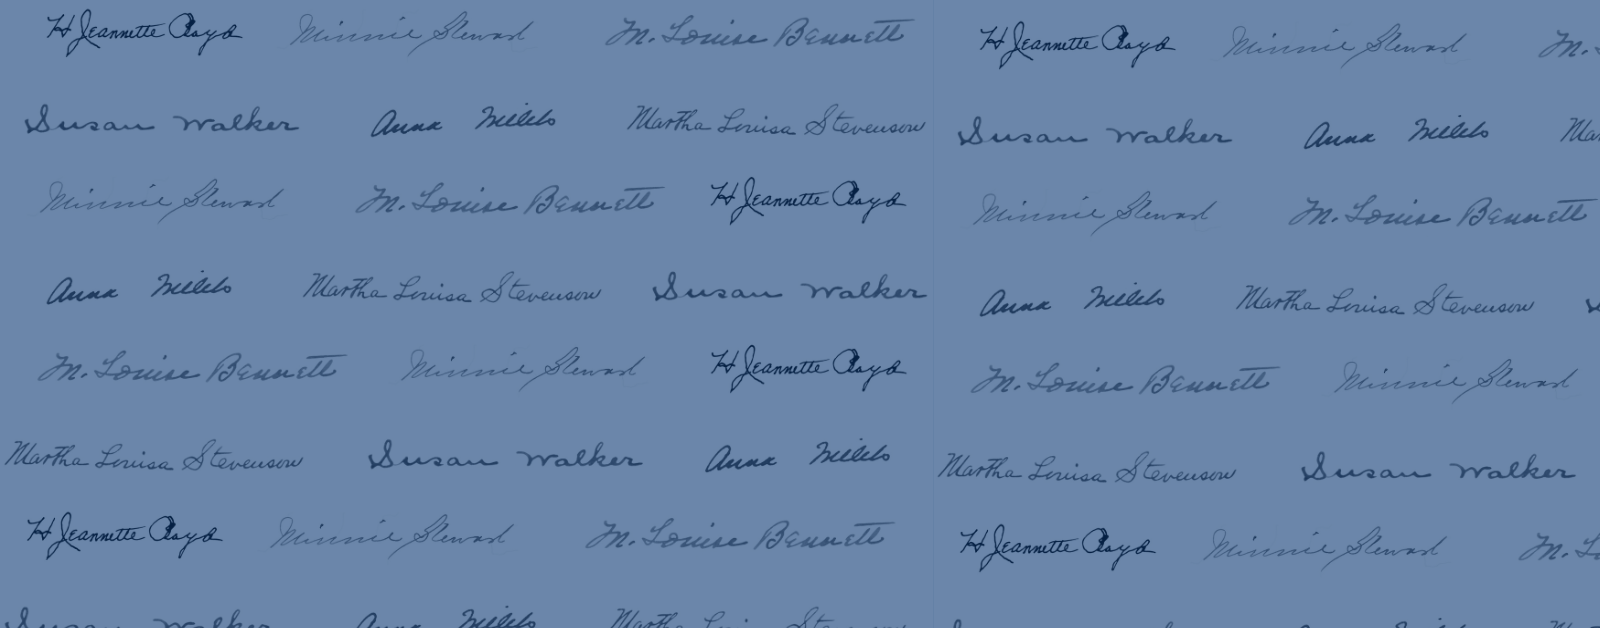 H Jeannette Cloyd Minnie Steward M. Louise Bennett H Jeannette Cloyd Minnie Steward M.
Susan Walker Anna Martha Louisa Stevenson Susan Walker Anna
Minnie Steward M. Louise Bennett H Jeannette Cloyd Minnie Steward M. Louise Bennett
Anna Martha Louisa Stevenson Susan Walker Anna Martha Louisa Stevenson
M. Louise Bennett Minnie Steward H Jeannette Cloyd M. Louise Bennett Minnie Steward
Martha Louisa Stevenson Susan Walker Anna Martha Louisa Stevenson Susan Walker
H Jeannette Cloyd Minnie Steward M. Louise Bennett H Jeannette Cloyd Minnie Steward M.
Susan Walker Anna Martha